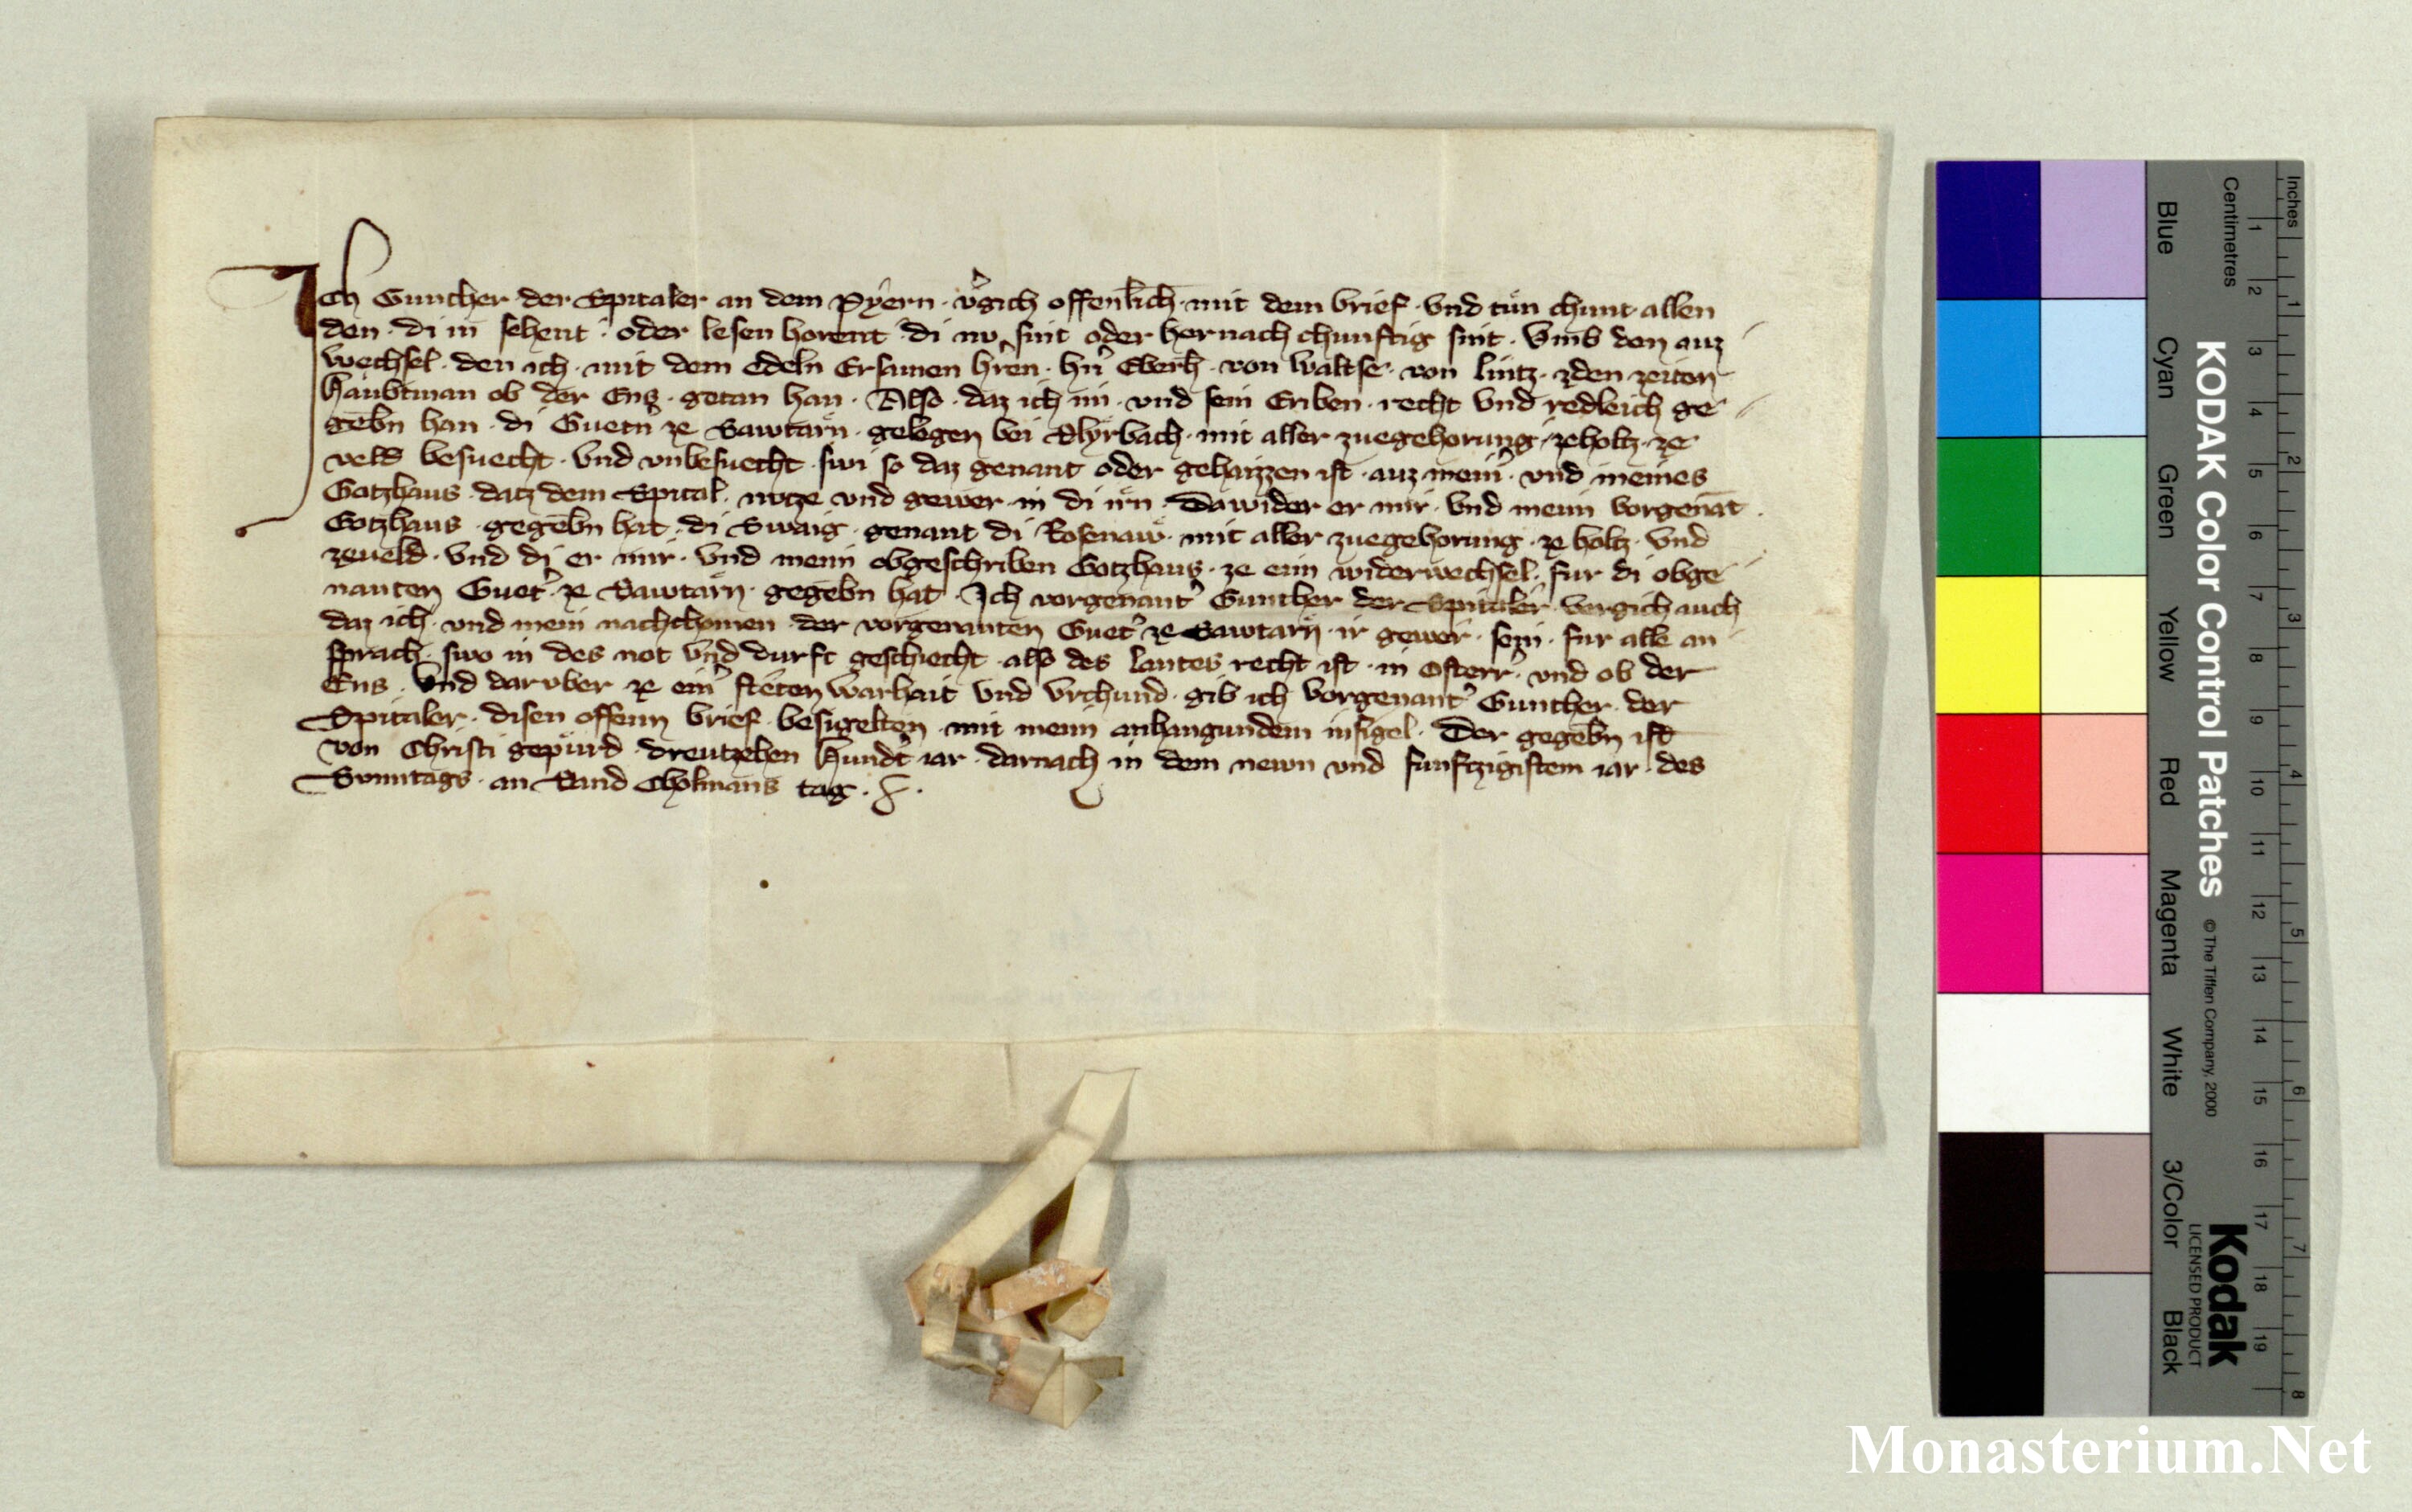 Ich Gunther der Spitaler an dem Pyern · v̾gich offenl̄ich · mit dem brief · vnd tuͤn chunt allen
den · di in sehent · oder lesen horent · di nv sint oder her nach chunftig sint · Vmb den auz
wechsel · den ich · mit dem Edeln Ersamen h̾ren · hn̾ Eberh̄ · von Waltse · von lintz · zden zeiten
haubtman ob der Ens · getan han · Also · daz ich im · vnd sein Eriben · recht vnd redleich ge
gebn han · di Guetn ze Sawtarn · gelegen bei Alyrbach · mit aller zuegehorung · zeholtz · ze
veld besuecht · vnd vnbesuecht · swi so daz genant oder gehaizzen ist · auz mein̾ · vnd meines
Gotzhaus · datz dem Spital · nutze vnd gewer in di irn · Dawider er mir · vnd meim vorgenāt
Gotzhaus · gegebn hat · di Swaig · genant di Rosenaw · mit aller zuegehorung · ze holtz · vnd
zeueld · vnd di er mir · vnd meim obgeschriben Gotzhaus · ze eim widerwechsel · fur di obge
nanten Guet̾ · ze Sawtarn · gegebn hat · Ich vorgenant̾ Gunther der Spitaler · vergich auch
daz ich · vnd mein nachchomen · der vorgenanten Guet̾ ze Sawtarn · ir gewer · sein · fur alle an
sprach · swo in des not vnd durft geschiecht · also des lantes recht ist · in Osterr̾ · vnd ob der
Ens · Vnd daruber ze ein̾ steten warhait vnd vrchund · gib ich vorgenant̾ Gunther · der
Spitaler · disen offenn brief · besigelten · mit meim anhangundem insigel · Der gegebn ist
von Christi gepuͤrd · dreutzehen hund̾t iar · darnach in dem newn vnd funftzigistem iar · des
Sunntags · an Sand Cholmans tag ·
KODAK Color Control Patches © The Tiffen Company, 2000
Kodak
LICENSED PRODUCT
Inches 1 2 3 4 5 6 7 8
Centimetres 1 2 3 4 5 6 7 8 9 10 11 12 13 14 15 16 17 18 19
Blue Cyan Green Yellow Red Magenta White 3/Color Black
Monasterium.Net